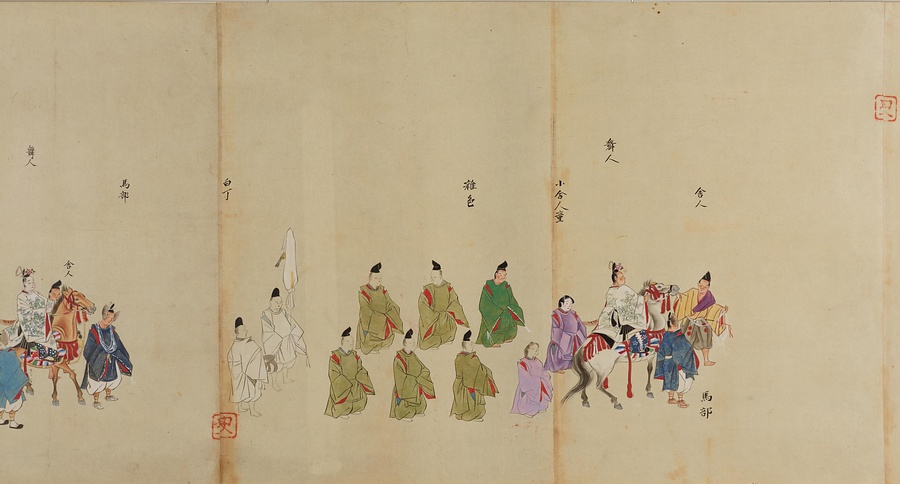 舞人
舎人
馬部
小舎人童
雑色
白丁
馬部
舎人
舞人